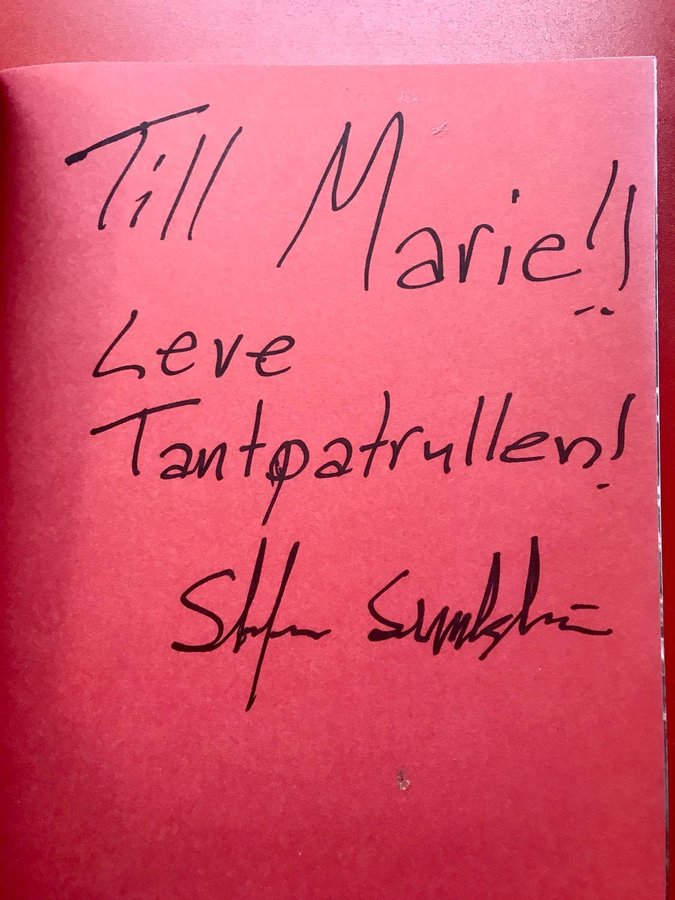 Till Marie!!
Leve
Tantpatrullen!